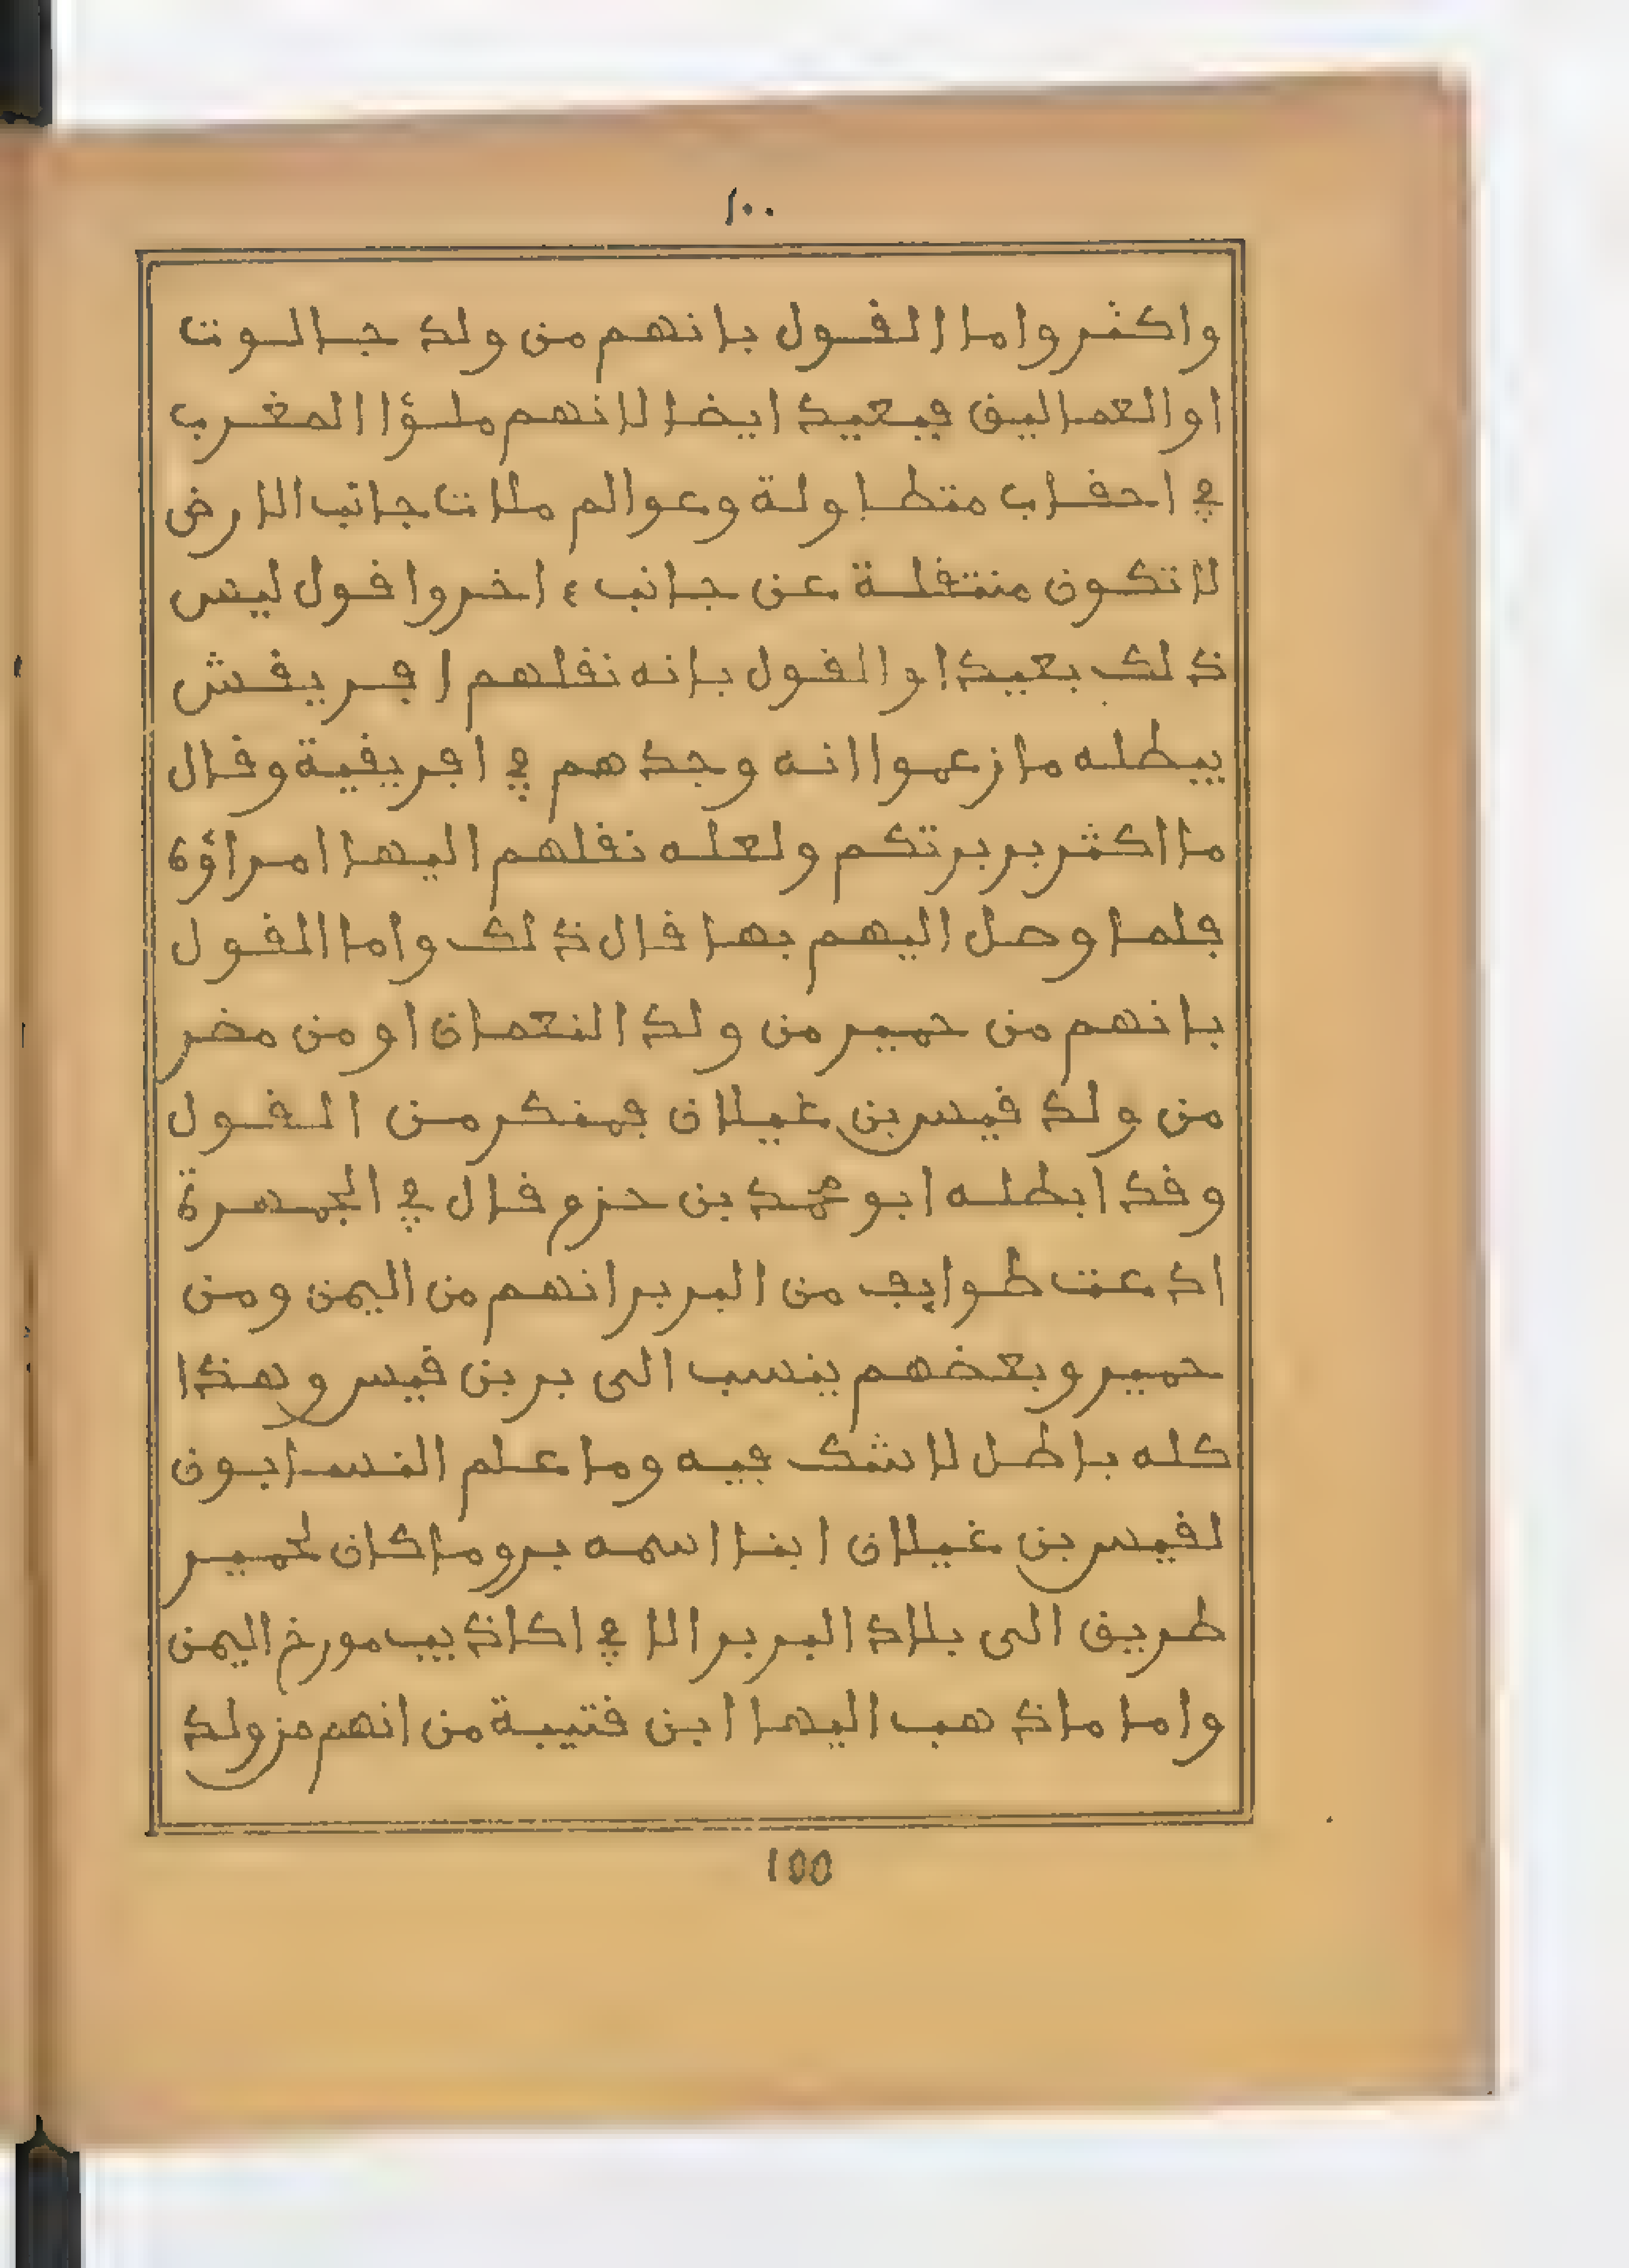 ١٠٠
واكثر واما القول بانهم من ولد جالوت
او العماليق فبعيد ايضا لانهم ملؤا المغرب
في احقاب متطاولة وعوالم ملات جانب الارض
لا تكون منتقلة عن جانب ءاخر واقول ليس
ذلك بعيدا والقول بانه نقلهم افريقش
يبطله ما زعموا انه وجدهم في افريقية وقال
ما اكثر بربرتكم ولعله نقلهم اليها امراؤه
فلما وصل اليهم بها قال ذلك واما القول
بانهم من حمير من ولد النعمان او من مضر
من ولد قيس بن غيلان فمنكر من القول
وقد ابطله ابو محمد بن حزم قال في الجمهرة
ادعت طوايف من البربر انهم من اليمن ومن
حمير وبعضهم ينسب الى بر بن قيس وهذا
كله باطل لا شك فيه وما علم النسابون
لقيس بن غيلان ابنا اسمه بر وما كان لحمير
طريق الى بلاد البربر الا في اكاذيب مورخ اليمن
واما ما ذهب اليها ابن قتيبة من انهم من ولد
100